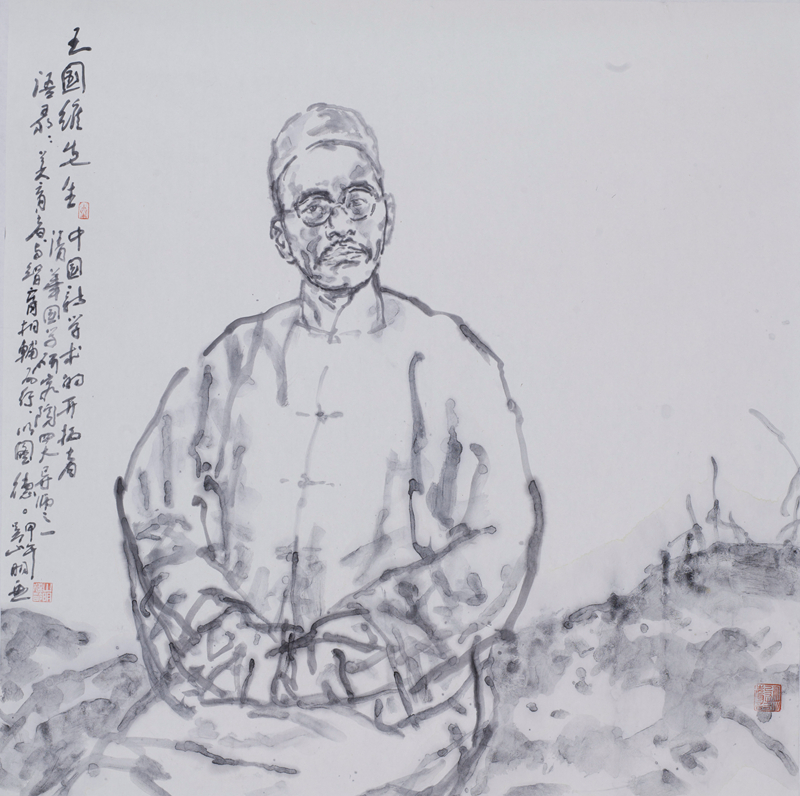 王国維先生
中国新学术的开拓者
清華国学研究院四大导师之一
語录：美育者与智育相輔而行，以图德。甲午